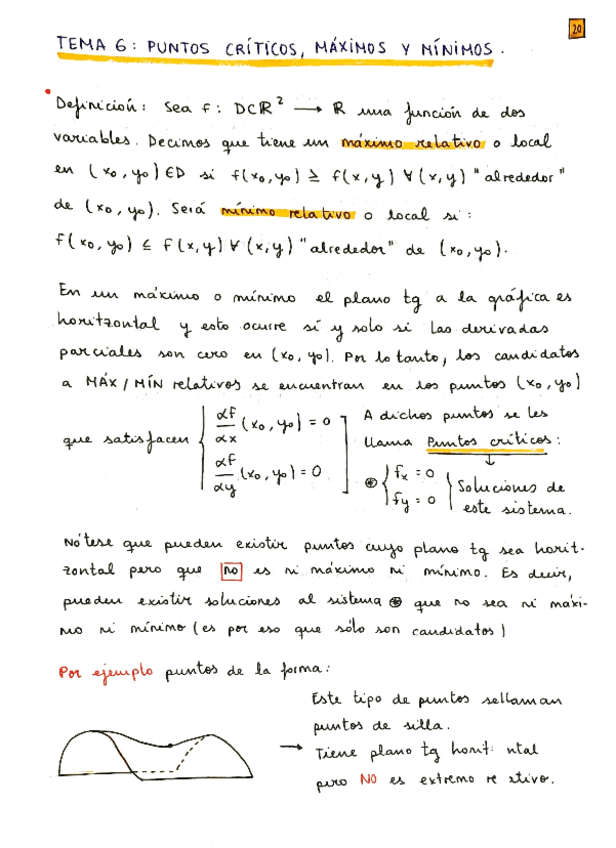 20
TEMA 6: PUNTOS CRÍTICOS, MÁXIMOS Y MÍNIMOS.
Definición: Sea f: D⊂ℝ² → ℝ una función de dos
variables. Decimos que tiene un máximo relativo o local
en (x₀, y₀) ∈ D si f(x₀, y₀) ≥ f(x, y) ∀ (x, y) "alrededor"
de (x₀, y₀). Será mínimo relativo o local si:
f(x₀, y₀) ≤ f(x, y) ∀ (x, y) "alrededor" de (x₀, y₀).
En un máximo o mínimo el plano tg a la gráfica es
horitzontal y esto ocurre sí y solo si las derivadas
parciales son cero en (x₀, y₀). Por lo tanto, los candidatos
a MÁX / MÍN relativos se encuentran en los puntos (x₀, y₀)
que satisfacen { αf/αx (x₀, y₀) = 0
αf/αy (x₀, y₀) = 0 ]
A dichos puntos se les
llama Puntos críticos:
⊛ { fx = 0
fy = 0 } Soluciones de
este sistema.
Nótese que pueden existir puntos cuyo plano tg sea horit-
zontal pero que NO es ni máximo ni mínimo. Es decir,
pueden existir soluciones al sistema ⊛ que no sea ni máxi-
mo ni mínimo (es por eso que sólo son candidatos)
Por ejemplo puntos de la forma:
Este tipo de puntos sellaman
puntos de silla.
→ Tiene plano tg horit ntal
pero NO es extremo re ativo.